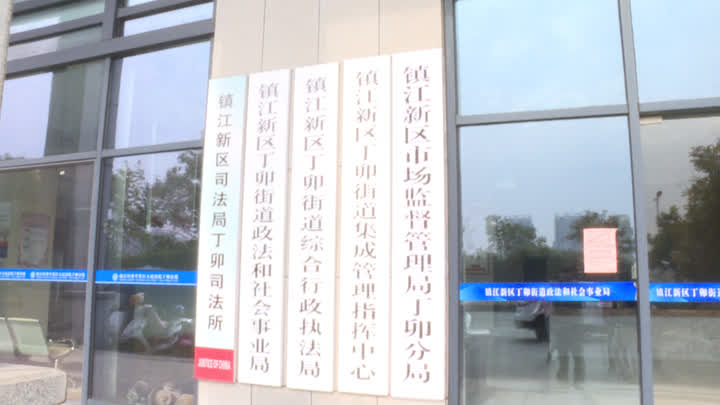 镇江新区司法局丁卯司法所
JUSTICE OF CHINA
镇江新区丁卯街道政法和社会事业局
镇江新区丁卯街道综合行政执法局
镇江新区丁卯街道集成管理指挥中心
镇江新区市场监督管理局丁卯分局
镇江新区丁卯街道政法和社会事业局
镇江新区丁卯街道